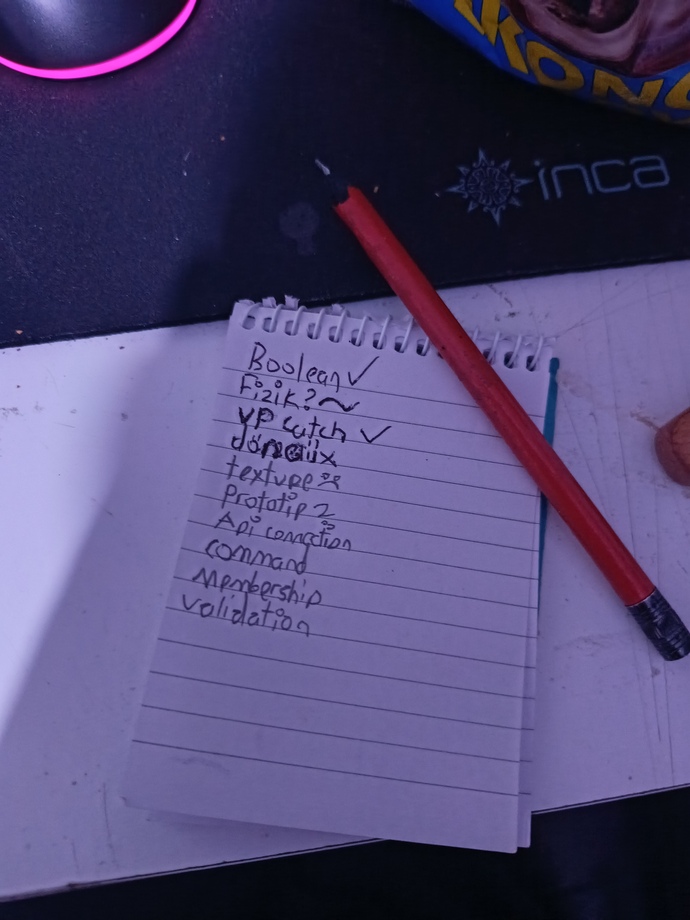 KONO
inca
Boolean ✓
Fizik? ~
VP catch ✓
texture
Prototip 2
Api connection
command
Membership
validation